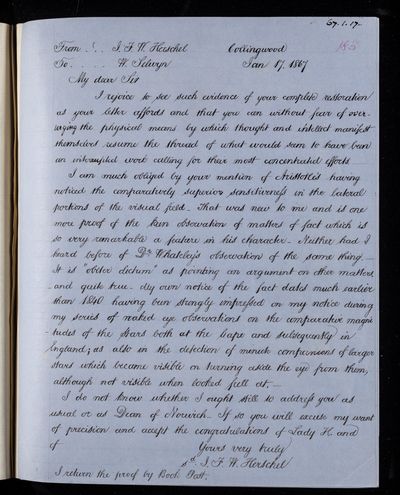 67.1.17.
From . . . J. F. W. Herschel Collingwood 185
To . . . . W. Selwyn Jan 17. 1867
My dear Sir
I rejoice to see such evidence of your complete restoration
as your letter affords and that you can without fear of over-
urging the physical means by which thought and intellect manifest
themselves resume the thread of what would seem to have been
an interrupted work calling for their most concentrated efforts
I am much obliged by your mention of Aristotle's having
noticed the comparatively superior sensitiveness in the lateral
portions of the visual field_ That was new to me and is one
more proof of the keen observation of matters of fact which is
so very remarkable a feature in his character_ Neither had I
heard before of Dr. Whateley's observation of the same thing._
It is "obiter dictum" as pointing an argument on other matters
_and quite true_ My own notice of the fact dates much earlier
than 1840 having been strongly impressed on my notice during
my series of naked eye observations on the comparative magni
-tudes of the stars both at the Cape and subsequently in
England; as also in the detection of minute companions of larger
stars which became visible on turning aside the eye from them,
although not visible when looked full at._
I do not know whether I ought still to address you as
usual or as Dean of Norwich_ If so you will excuse my want
of precision and accept the congratulations of Lady H. and
of Yours very truly
sd. J. F. W. Herschel
I return the proof by Book Post.